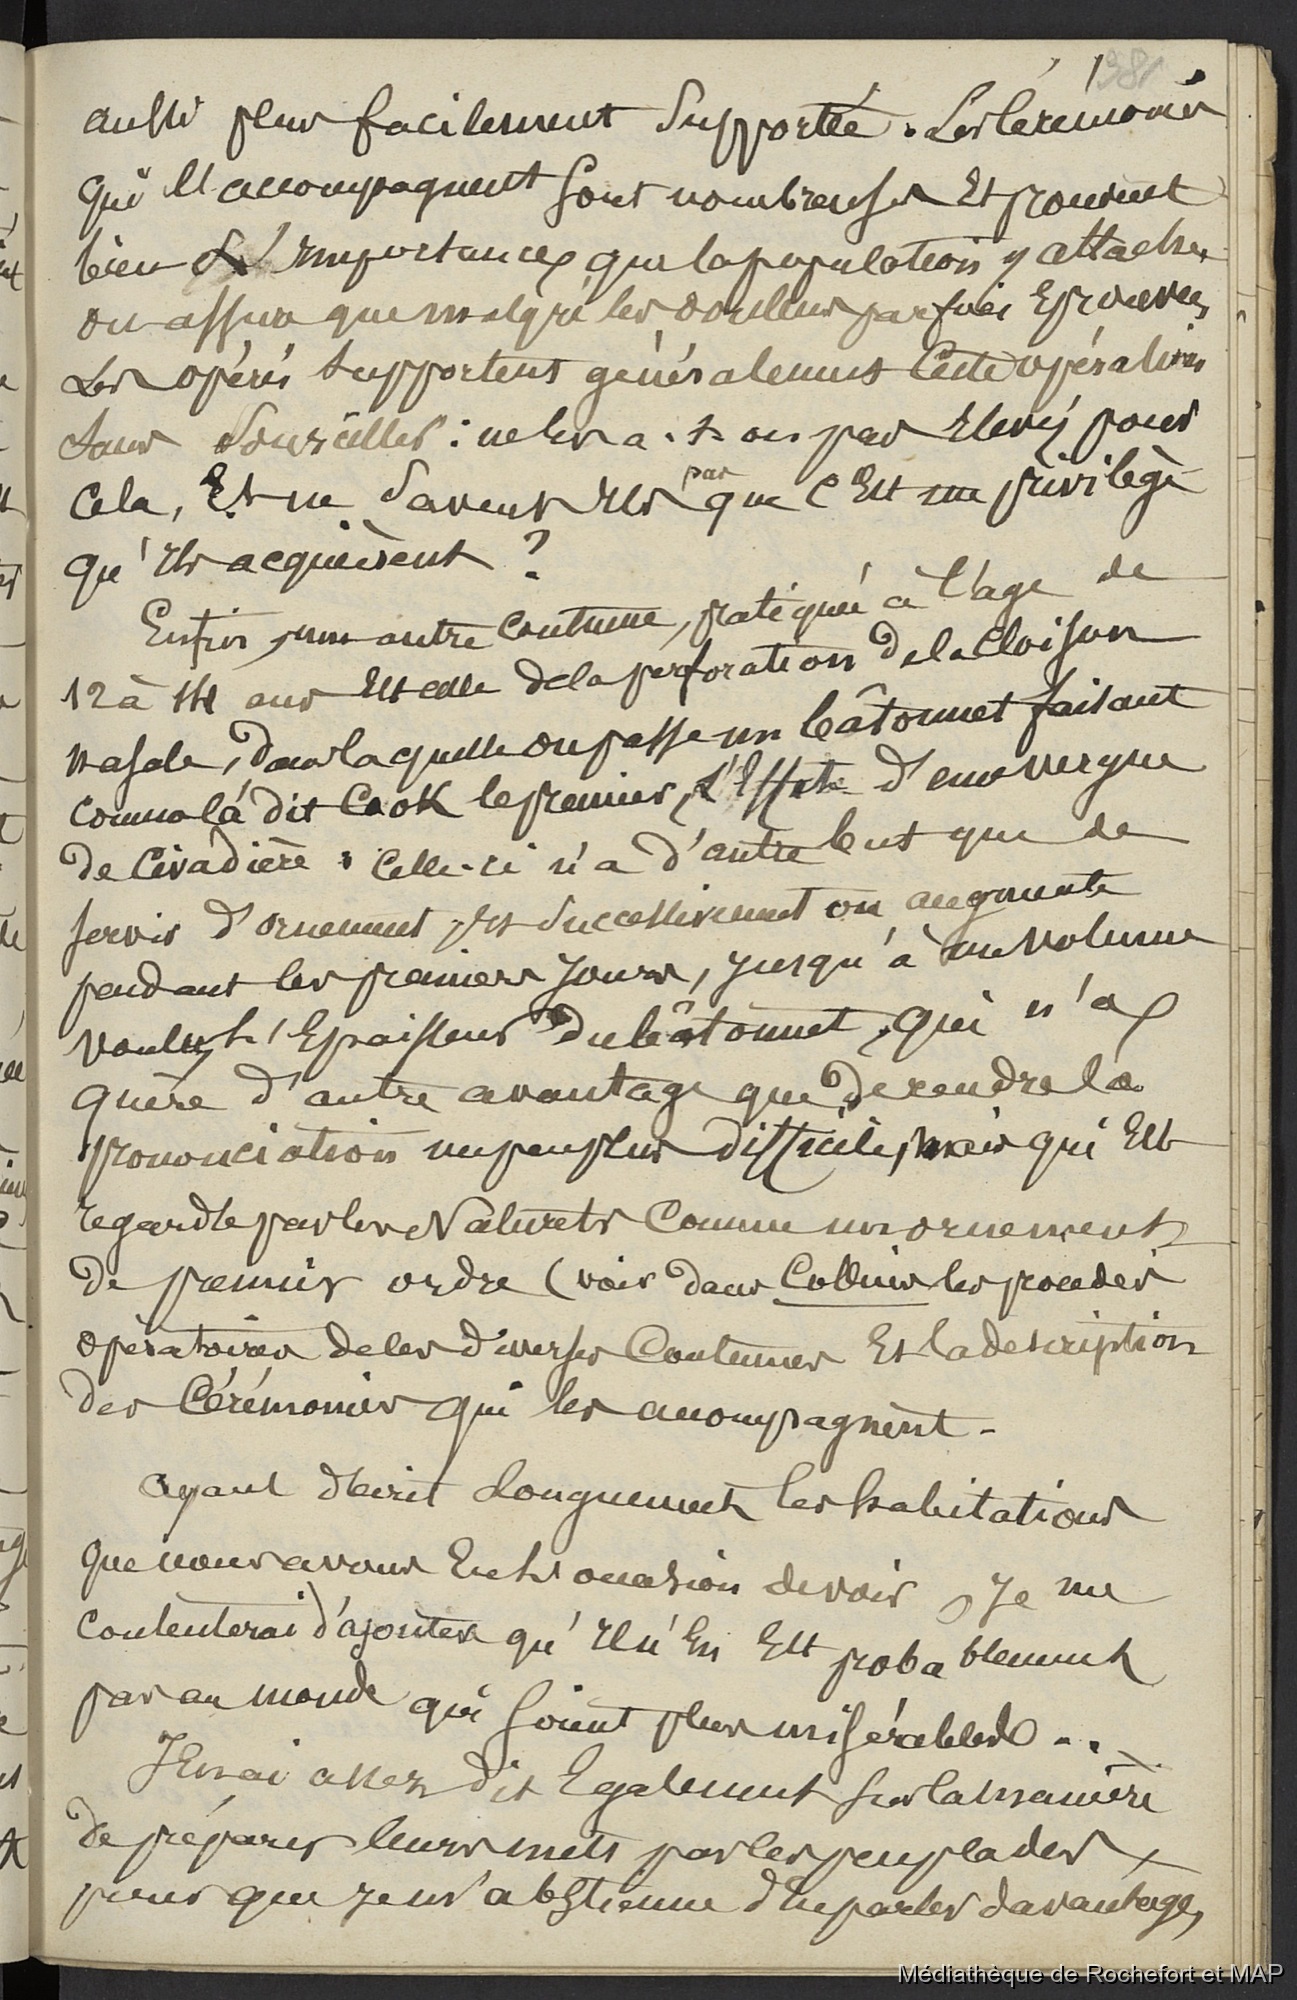 381
aussi plus facilement supportée. Les Cérémonies
qui l'accompagnent sont nombreuses Et prouvent
bien l'importance que la population y attache,
on assure que malgré les douleurs parfois Eprouvées,
Les opérés supportent généralement Cette opération
sans sourciller : ne les a-t-on pas Elevés pour
Cela, Et ne savent Ils pas que C'Est un privilège
qu'Ils acquièrent ?
Enfin, une autre Coutume, pratiquée à l'age de
12 à 14 ans Est celle de la perforation de la Cloison
nasale, dans laquelle on passe un bâtonnet faisant
comme l'a dit Cook le premier, l'Effet d'une vergue
de Civadière : Celle-ci n'a d'autre but que de
servir d'ornement, Et successivement on augmente
pendant les premiers Jours, jusqu'à un volume
voulu, l'Epaisseur du bâtonnet, qui n'a
guère d'autre avantage que de rendre la
prononciation un peu plus difficile, mais qui Est
regardé par les Naturels Comme un ornement
de premier ordre (voir dans Collins les procédés
opératoires de les diverses Coutumes Et la description
des Cérémonies qui les accompagnent.
ayant décrit longuement les habitations
que nous avons Eu l'occasion de voir, Je me
contenterai d'ajouter qu'Il n'En Est probablement
pas au monde qui soient plus misérables...
J'En ai assez dit Egalement sur la manière
de préparer leurs mets par les peuplades
pour que Je m'abstienne d'En parler davantage,
Médiathèque de Rochefort et MAP